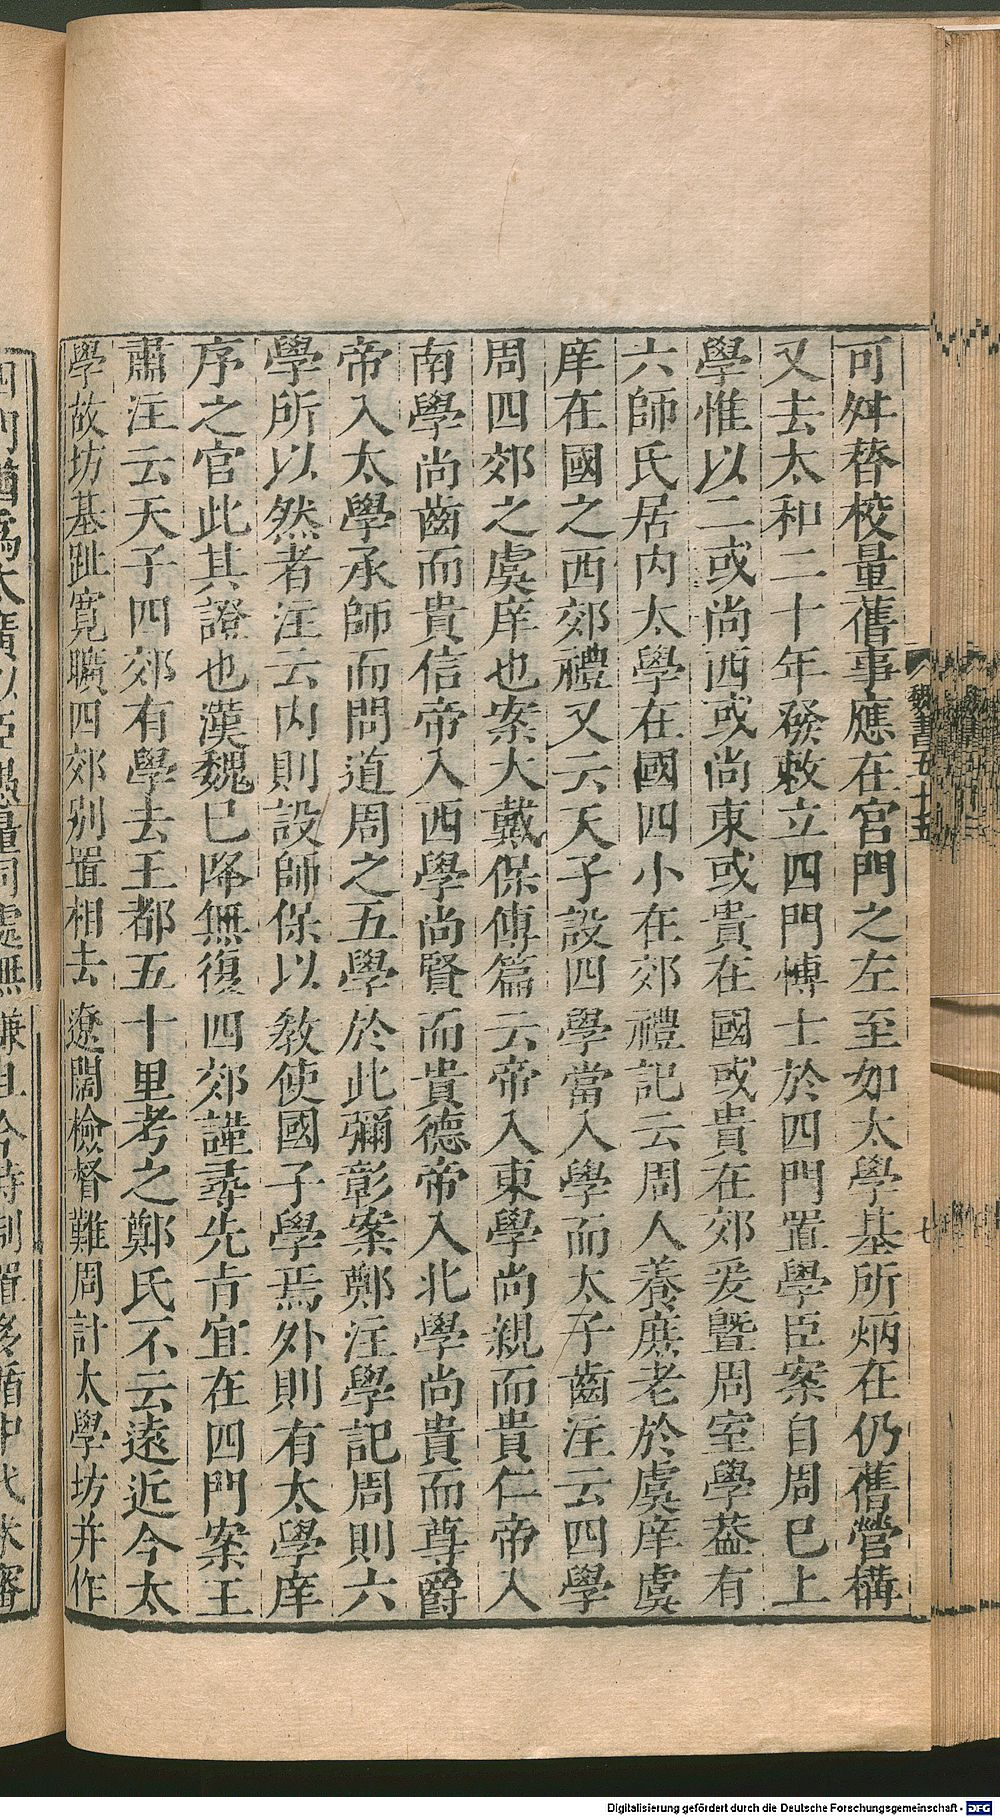 可舛替校量舊事應在宮門之左至如太學基所炳在仍舊營構
又去太和二十年發敕立四門博士於四門置學臣案自周已上
學惟以二或尚西或尚東或貴在國或貴在郊爰暨周室學葢有
六師氏居内太學在國四小在郊禮記云周人養庶老於虞庠虞
庠在國之西郊禮又云天子設四學當入學而太子齒注云四學
周四郊之虞庠也案大戴保傅篇云帝入東學尚親而貴仁帝入
南學尚齒而貴信帝入西學尚賢而貴德帝入北學尚貴而尊爵
帝入太學承師而問道周之五學於此彌彰案鄭注學記周則六
學所以然者注云内則設師保以教使國子學焉外則有太學庠
序之官此其證也漢魏已降無復四郊謹尋先㫖宜在四門案王
肅注云天子四郊有學去王都五十里考之鄭氏不云遠近今太
學故坊基趾寬曠四郊别置相去遼闊檢督難周計太學坊并作
四門猶爲太廣以臣愚量同處無嫌且今時制置多循中代未審
魏書五十五
七
Digitalisierung gefördert durch die Deutsche Forschungsgemeinschaft - DFG